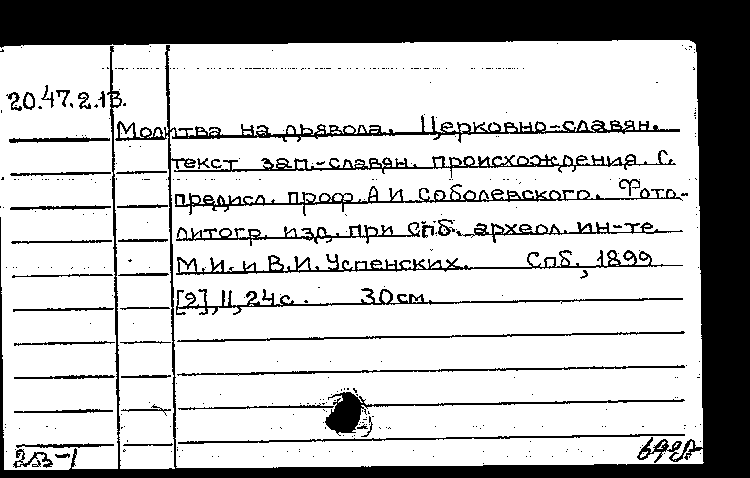 20.47.2.13.
Молитва на дьявола. Церковно-славян.
текст зап.-славян. происхождения. С
предисл. проф. А И. Соболевского. Фото-
литогр. изд. при Спб. археол. ин-те
М.И. и В.И. Успенских. Спб., 1899
[2], II, 24 с. 30 см.